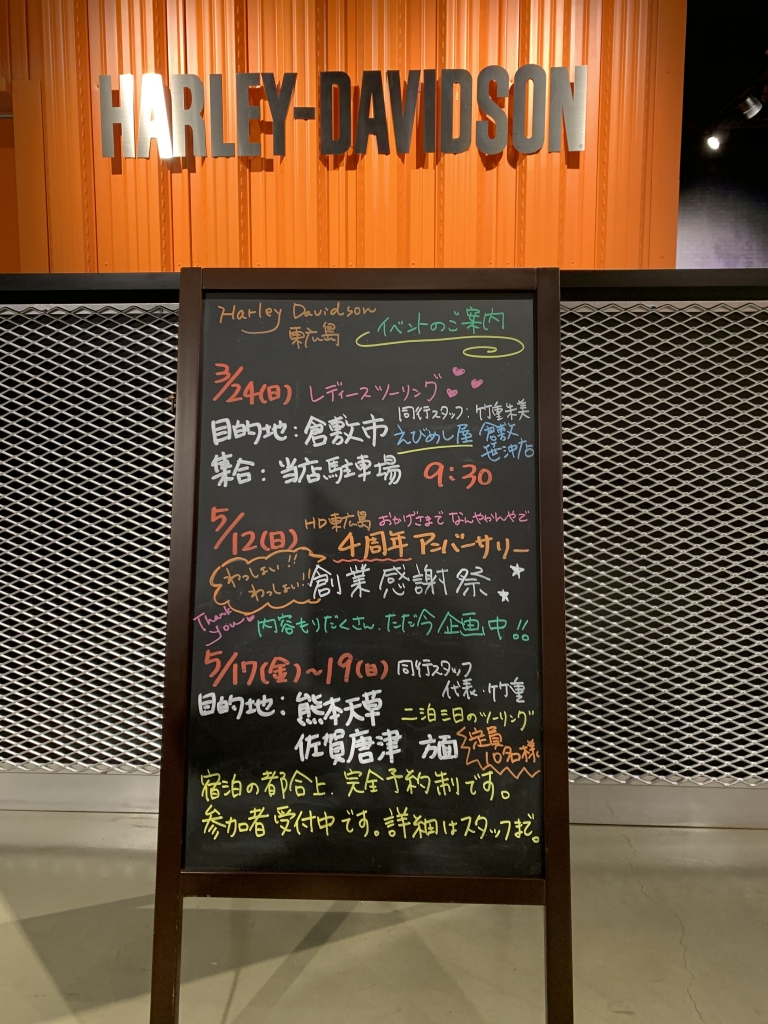 HARLEY-DAVIDSON
Harley Davidson
東広島
イベントのご案内
3/24(日) レディースツーリング
同行スタッフ:竹重朱美
目的地:倉敷市 えびめし屋 倉敷
笹沖店
集合:当店駐車場 9:30
5/12(日) HD東広島 おかげさまで なんやかんやで
4周年アンバーサリー
わっしょい!!
わっしょい!!
創業感謝祭
Thank
you
内容もりだくさん、ただ今企画中!!
5/17(金)~19(日) 同行スタッフ
代表・竹重
目的地:熊本天草 二泊三日のツーリング
佐賀唐津 方面 定員
10名様
宿泊の都合上、完全予約制です。
参加者受付中です。詳細はスタッフまで。